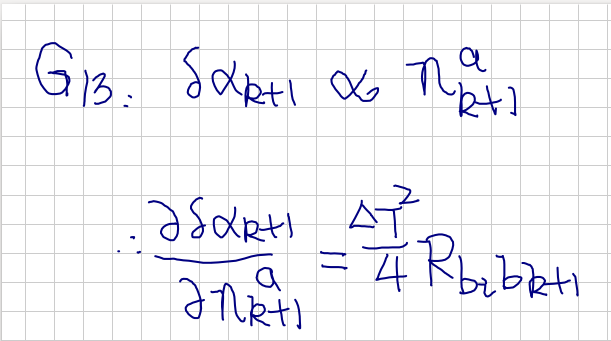 G13: δα_{k+1} ∝ n^a_{k+1}
∴ ∂δα_{k+1} / ∂n^a_{k+1} = ΔT² / 4 R_{b_i b_{k+1}}